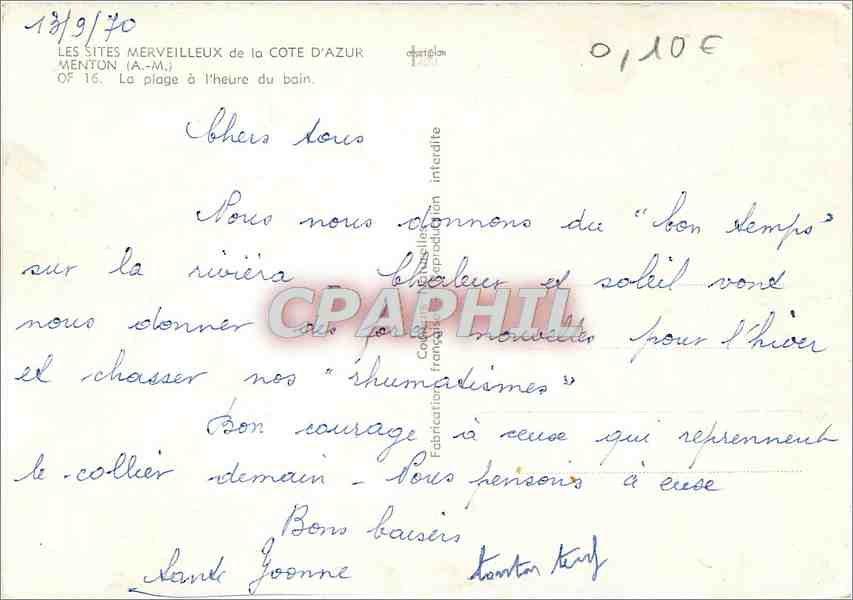 13/9/70
LES SITES MERVEILLEUX de la COTE D'AZUR
MENTON (A.-M.)
OF 16. La plage à l'heure du bain.
0,10 €
Chers tous
Nous nous donnons du "bon temps"
sur la riviéra _ Chaleur et soleil vont
nous donner des forces nouvelles pour l'hiver
et chasser nos "rhumatismes"
Bon courage à ceux qui reprennent
le collier demain - Nous pensons à eux
Bons baisers
Tante Yvonne tonton
CPAPHIL
Couleurs Naturelles
Fabrication française Reproduction interdite